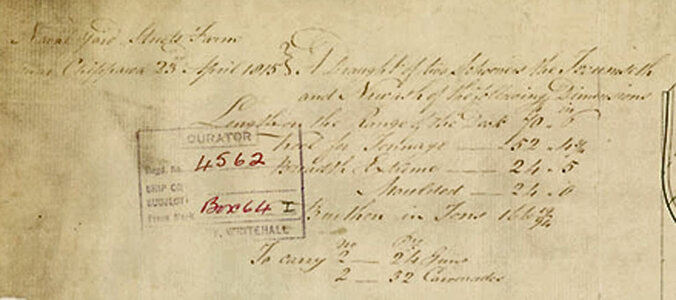 Naval Yard Streets Farm
near Chippawa 23d April 1815 } A Draught of two Schooners the Tecumseth
and Newash of the following Dimensions
ft in
Length on the Range of the Deck 70 . 6
Keel for Tonnage — 52 . 4¾
Breadth Extreme — 24 . 5
Moulded — 24 . 0
Burthen in Tons 166
To carry
no Pr
2 — 24 Guns
2 — 32 Carronades
CURATOR
Regd. No. 4562
SHIP CO
SUBJECT
Press Mark Box 64 I
WHITEHALL